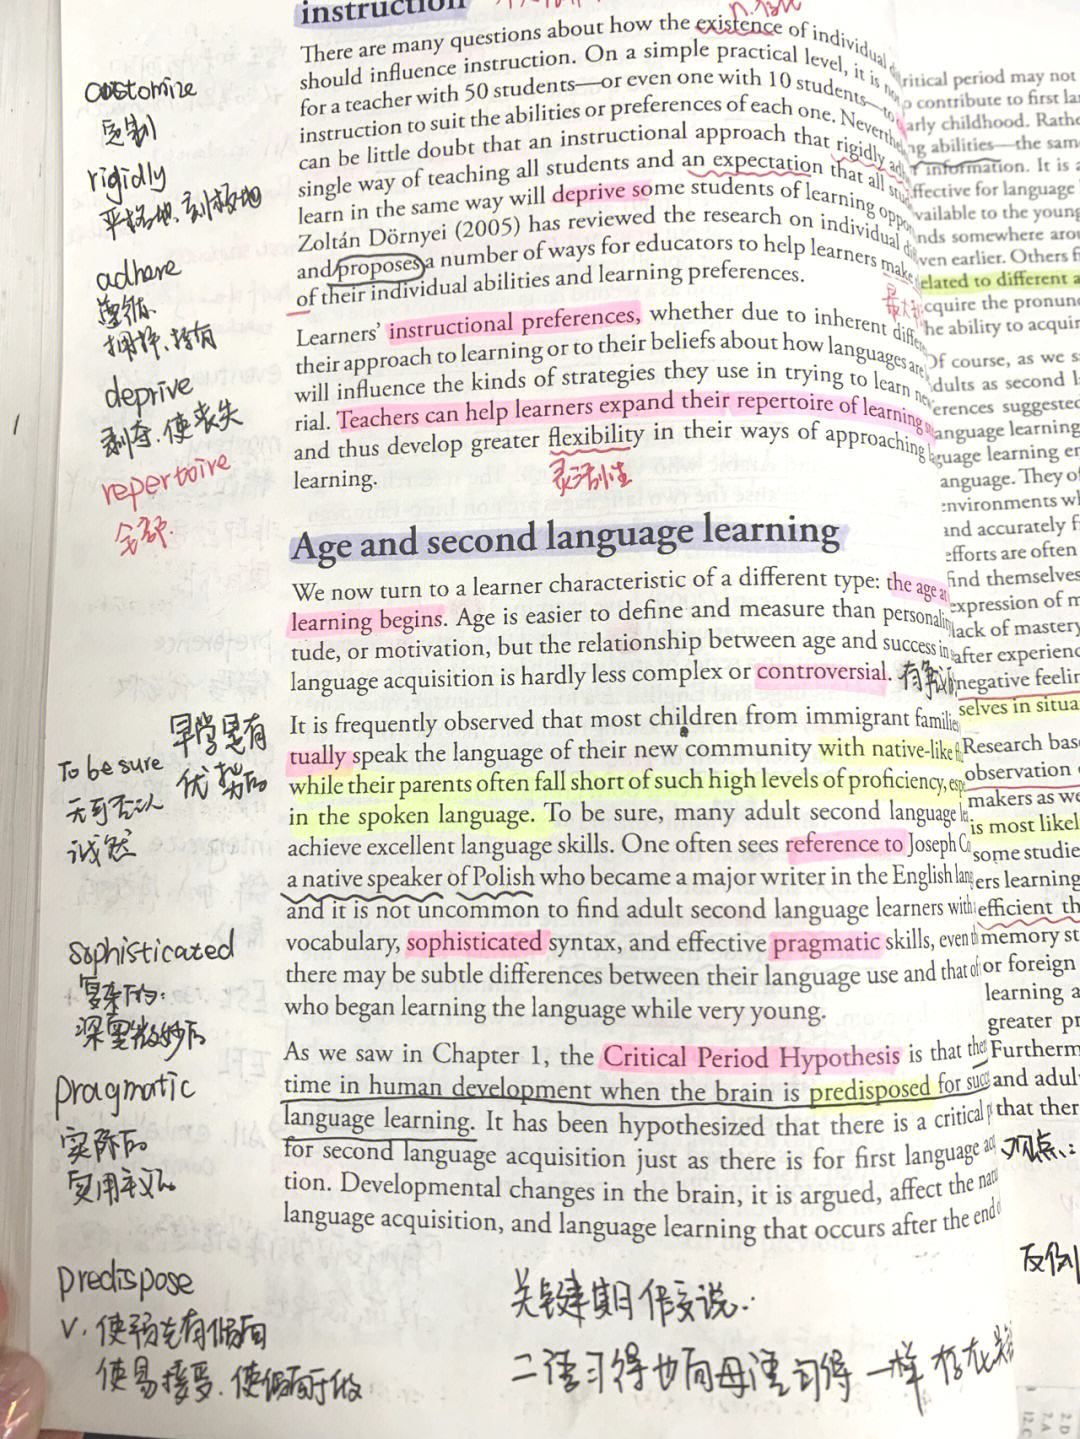 instruction
There are many questions about how the existence of individual
should influence instruction. On a simple practical level, it is
for a teacher with 50 students—or even one with 10 students—to
instruction to suit the abilities or preferences of each one. Neverthe
can be little doubt that an instructional approach that rigidly
single way of teaching all students and an expectation that all
learn in the same way will deprive some students of learning oppo
Zoltán Dörnyei (2005) has reviewed the research on individual
and proposes a number of ways for educators to help learners make
of their individual abilities and learning preferences.
Learners' instructional preferences, whether due to inherent diffe
their approach to learning or to their beliefs about how languages are
will influence the kinds of strategies they use in trying to learn
rial. Teachers can help learners expand their repertoire of learning
and thus develop greater flexibility in their ways of approaching
灵活性
learning.
Age and second language learning
We now turn to a learner characteristic of a different type: the age
learning begins. Age is easier to define and measure than personali
tude, or motivation, but the relationship between age and success in
language acquisition is hardly less complex or controversial.
It is frequently observed that most children from immigrant familie
tually speak the language of their new community with native-like
while their parents often fall short of such high levels of proficiency,
in the spoken language. To be sure, many adult second language
achieve excellent language skills. One often sees reference to Joseph
a native speaker of Polish who became a major writer in the English
and it is not uncommon to find adult second language learners with
vocabulary, sophisticated syntax, and effective pragmatic skills, even
there may be subtle differences between their language use and that of
who began learning the language while very young.
As we saw in Chapter 1, the Critical Period Hypothesis is that
time in human development when the brain is predisposed for succ
language learning. It has been hypothesized that there is a critical
for second language acquisition just as there is for first language
tion. Developmental changes in the brain, it is argued, affect the
language acquisition, and language learning that occurs after the end
customize
定制
rigidly
严格地、刻板地
adhere
遵循
拥护、持有
deprive
剥夺、使丧失
repertoire
早学是有
优势的
To be sure
无可否认
诚然
sophisticated
复杂的
深奥微妙的
pragmatic
实际的
实用主义的
predispose
v. 使预先有倾向
使易接受、使倾向于做
关键期假说
二语习得也向母语习得一样存在
ritical period may not
contribute to first la
arly childhood. Rathe
abilities—the sam
information. It is
ffective for language
vailable to the young
nds somewhere arou
ven earlier. Others
elated to different
cquire the pronun
he ability to acquir
Of course, as we
dults as second
erences suggested
anguage learning
guage learning
anguage. They
environments
and accurately
efforts are often
find themselves
expression of
lack of mastery
after experienc
negative feelin
selves in situa
Research bas
observation
makers as we
is most likel
some studie
ers learning
efficient th
memory st
or foreign
learning
greater pr
Furtherm
and adul
that ther
观点:
反例